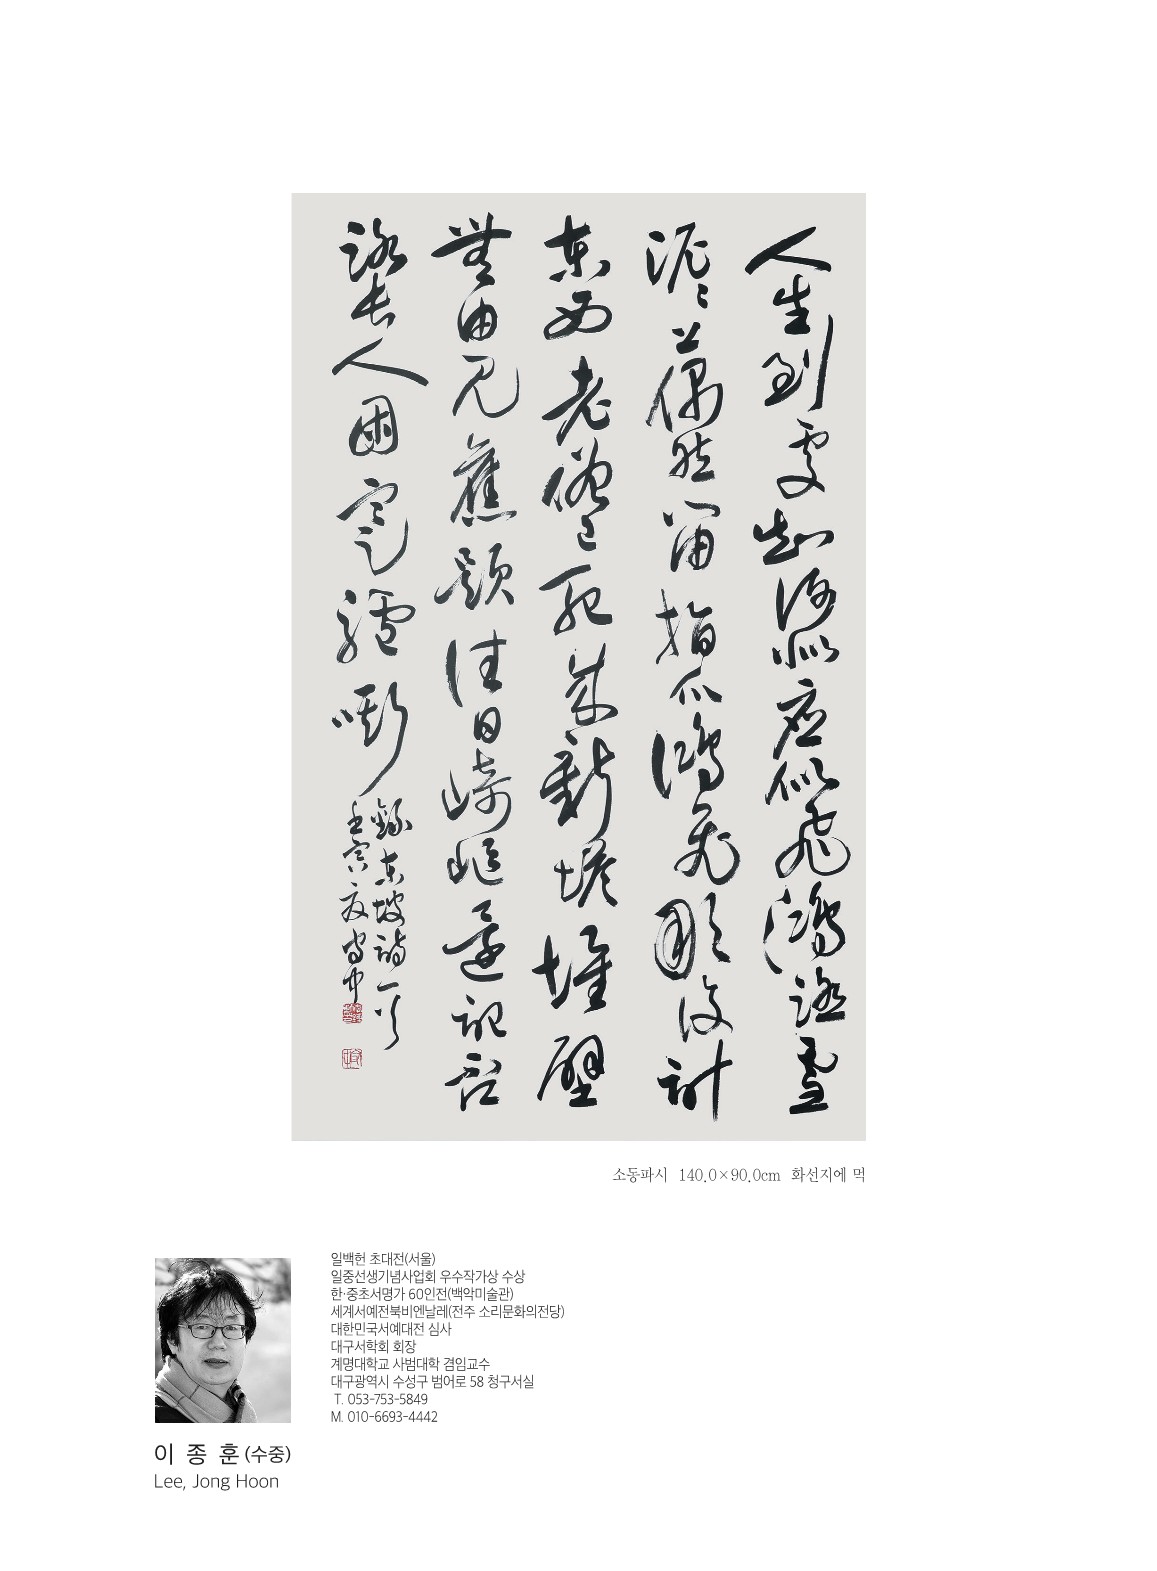 人生到處知何似應似飛鴻踏雪
泥〻上偶然留指爪鴻飛那復計
東西老僧已死成新塔壞壁
無由見舊題往日崎嶇還記否
路長人困蹇驢嘶
錄東坡詩一首
壬寅夏守中
소동파시 140.0×90.0cm 화선지에 먹
일백헌 초대전(서울)
일중선생기념사업회 우수작가상 수상
한·중초서명가 60인전(백악미술관)
세계서예전북비엔날레(전주 소리문화의전당)
대한민국서예대전 심사
대구서학회 회장
계명대학교 사범대학 겸임교수
대구광역시 수성구 범어로 58 청구서실
T. 053-753-5849
M. 010-6693-4442
이 종 훈 (수중)
Lee, Jong Hoon